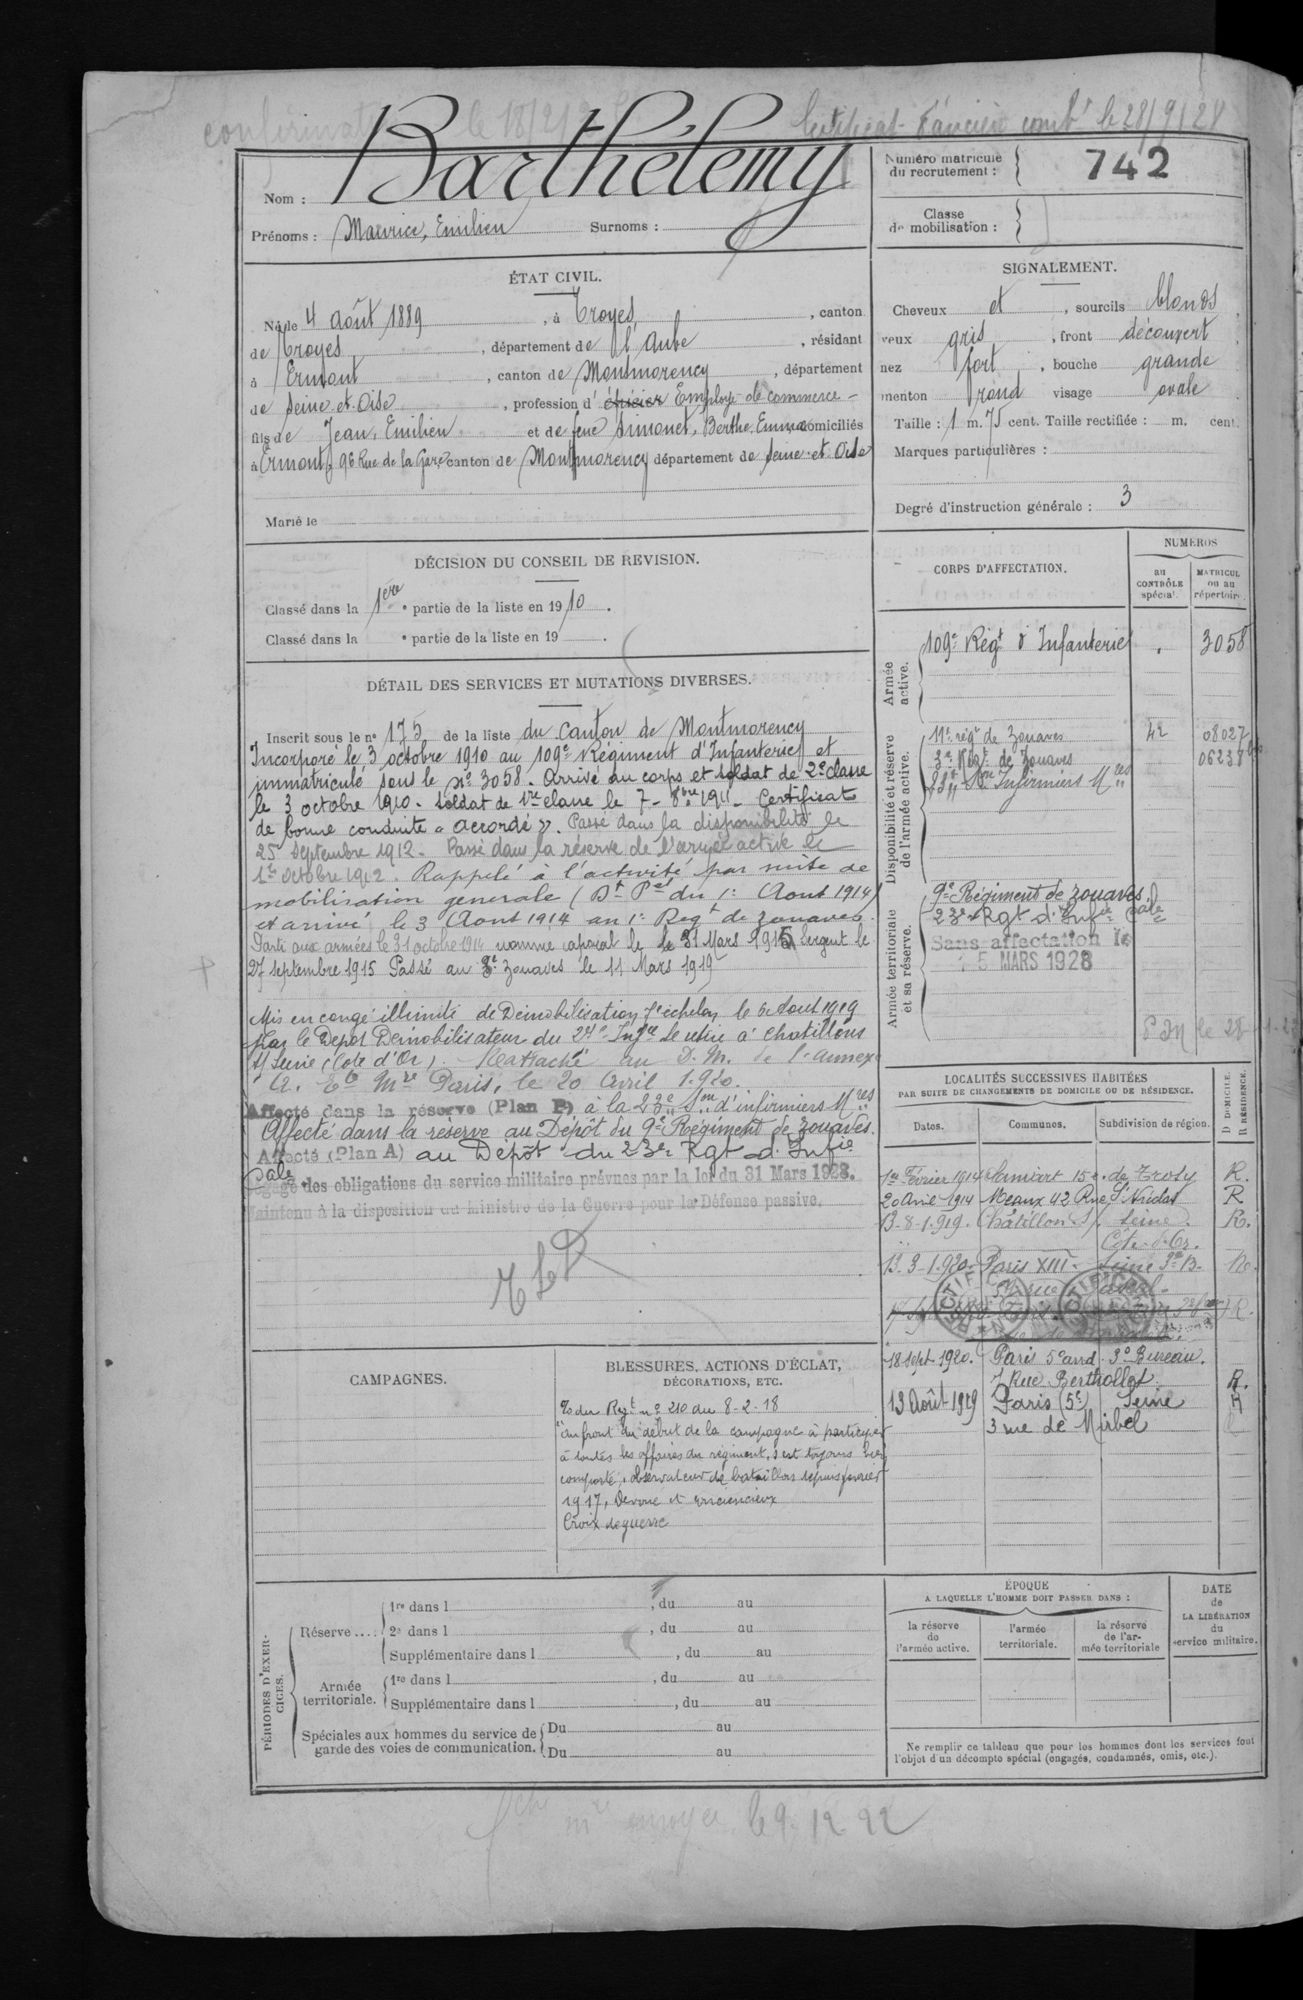 le 18/2/
Certificat d'ancien combt le 28/9/28
Nom : Barthélemy
Prénoms : Maurice, Emilien Surnoms :
Numéro matricule du recrutement : 742
Classe de mobilisation :
ÉTAT CIVIL.
Né le 4 août 1889, à Troyes, canton
de Troyes, département de l'Aube, résidant
à Ermont, canton de Montmorency, département
de Seine et Oise, profession d' épicier Employé de commerce
fils de Jean, Emilien et de feue Simonet, Berthe, Emma domiciliés
à Ermont, 96 Rue de la Gare canton de Montmorency département de Seine-et-Oise
Marié le
SIGNALEMENT.
Cheveux et, sourcils blonds
yeux gris, front découvert
nez fort, bouche grande
menton rond visage ovale
Taille : 1 m. 75 cent. Taille rectifiée : m. cent.
Marques particulières :
Degré d'instruction générale : 3
DÉCISION DU CONSEIL DE REVISION.
Classé dans la 1ère partie de la liste en 1910.
Classé dans la e partie de la liste en 19 .
DÉTAIL DES SERVICES ET MUTATIONS DIVERSES.
Inscrit sous le no 175 de la liste du canton de Montmorency
Incorporé le 3 octobre 1910 au 109e Régiment d'Infanterie et
immatriculé sous le no 3058. Arrivé au corps et soldat de 2e classe
le 3 octobre 1910. Soldat de 1re classe le 7 - 8bre 1911 - Certificat
de bonne conduite « accordé ». Passé dans la disponibilité le
25 Septembre 1912. Passé dans la réserve de l'armée active le
1er Octobre 1912. Rappelé à l'activité par suite de
mobilisation generale (Dt Pel du 1er Aout 1914)
et arrivé le 3 Aout 1914 au 1er Regt de zouaves.
Parti aux armées le 31 octobre 1914 nommé caporal le 31 Mars 1915 Sergent le
27 septembre 1915 Passé au 3e Zouaves le 11 Mars 1919
Mis en congé illimité de Démobilisation 7e échelon le 6 Aout 1919
par le Dépot Démobilisateur du 21e Infie se retire à Chatillons
s/ Seine (Cote d'Or). Rattaché au D.M. de l'annexe
Paris, le 20 Avril 1920.
Affecté dans la réserve (Plan P) à la 23e Son d'infirmiers Mres
Affecté dans la réserve au Dépôt du 9e Régiment de zouaves.
Affecté (Plan A) au Dépôt du 23e Rgt d'Infie
Cale
Dégagé des obligations du service militaire prévues par la loi du 31 Mars 1928.
Maintenu à la disposition du Ministre de la Guerre pour la Défense passive.
CORPS D'AFFECTATION.
NUMÉROS
au CONTRÔLE spécial.
MATRICULE ou au répertoire.
Armée active.
109e Régt d'Infanterie 3058
Disponibilité et réserve de l'armée active.
11e régt de Zouaves 42 08027
3e Régt de Zouaves 06238 bis
Son Infirmiers Mres
Armée territoriale et sa réserve.
9e Régiment de zouaves
23e Rgt d'Infie Cale
Sans affectation le
5 MARS 1928
LOCALITÉS SUCCESSIVES HABITÉES
PAR SUITE DE CHANGEMENTS DE DOMICILE OU DE RÉSIDENCE.
Dates. Communes. Subdivision de région. D DOMICILE. R RÉSIDENCE.
1er Février 1914 R.
20 Avril 1914 Meaux 42 Rue St Nicolas R
13-8-1919. Châtillon s/ Seine. R.
Côte-d'Or.
13-3-1920. Paris XIII Seine R.
RECTIFICATION
18 Sept 1920. Paris 5e arrd 3e Bureau.
7 Rue Berthollet R.
13 Août 1929 Paris (5e) Seine R
3 rue de Mirbel
CAMPAGNES.
BLESSURES, ACTIONS D'ÉCLAT,
DÉCORATIONS, ETC.
O/ du Regt no 210 du 8-2-18
"au front du début de la campagne à participer
à toutes les affaires du régiment, s'est toujours bien
comporté, observateur de bataillon depuis janvier
1917, Dévoué et consciencieux
Croix de guerre
PÉRIODES D'EXERCICES.
Réserve....
1re dans l , du au
2e dans l , du au
Supplémentaire dans l , du au
Armée territoriale.
1re dans l , du au
Supplémentaire dans l , du au
Spéciales aux hommes du service de garde des voies de communication.
Du au
Du au
ÉPOQUE
A LAQUELLE L'HOMME DOIT PASSER DANS :
la réserve de l'armée active.
l'armée territoriale.
la réserve de l'armée territoriale
DATE de LA LIBÉRATION du service militaire.
Ne remplir ce tableau que pour les hommes dont les services font
l'objet d'un décompte spécial (engagés, condamnés, omis, etc.).
envoyée le 9-12-22